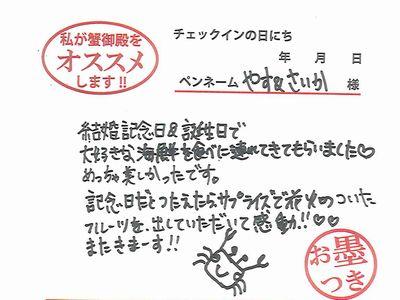 私が蟹御殿を
オススメ
します!!
チェックインの日にち
年 月 日
ペンネーム やす&さいか 様
結婚記念日&誕生日で
大好きな海鮮を食べに連れてきてもらいました♡
めっちゃ楽しかったです。
記念日だとつたえたらサプライズで花火のついた
フルーツを、出していただいて感動!!♡♡
またきまーす!!
お墨
つき